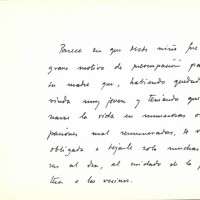 Parece en que desde niño fue
grave motivo de preocupación pa
su madre que, habiendo quedad
viuda muy joven y teniendo que
narse la vida en numerosas o
paciones mal remuneradas, se v
obligada a dejarle solo muchas
ras al día, al cuidado de la p
tera o las vecinas.